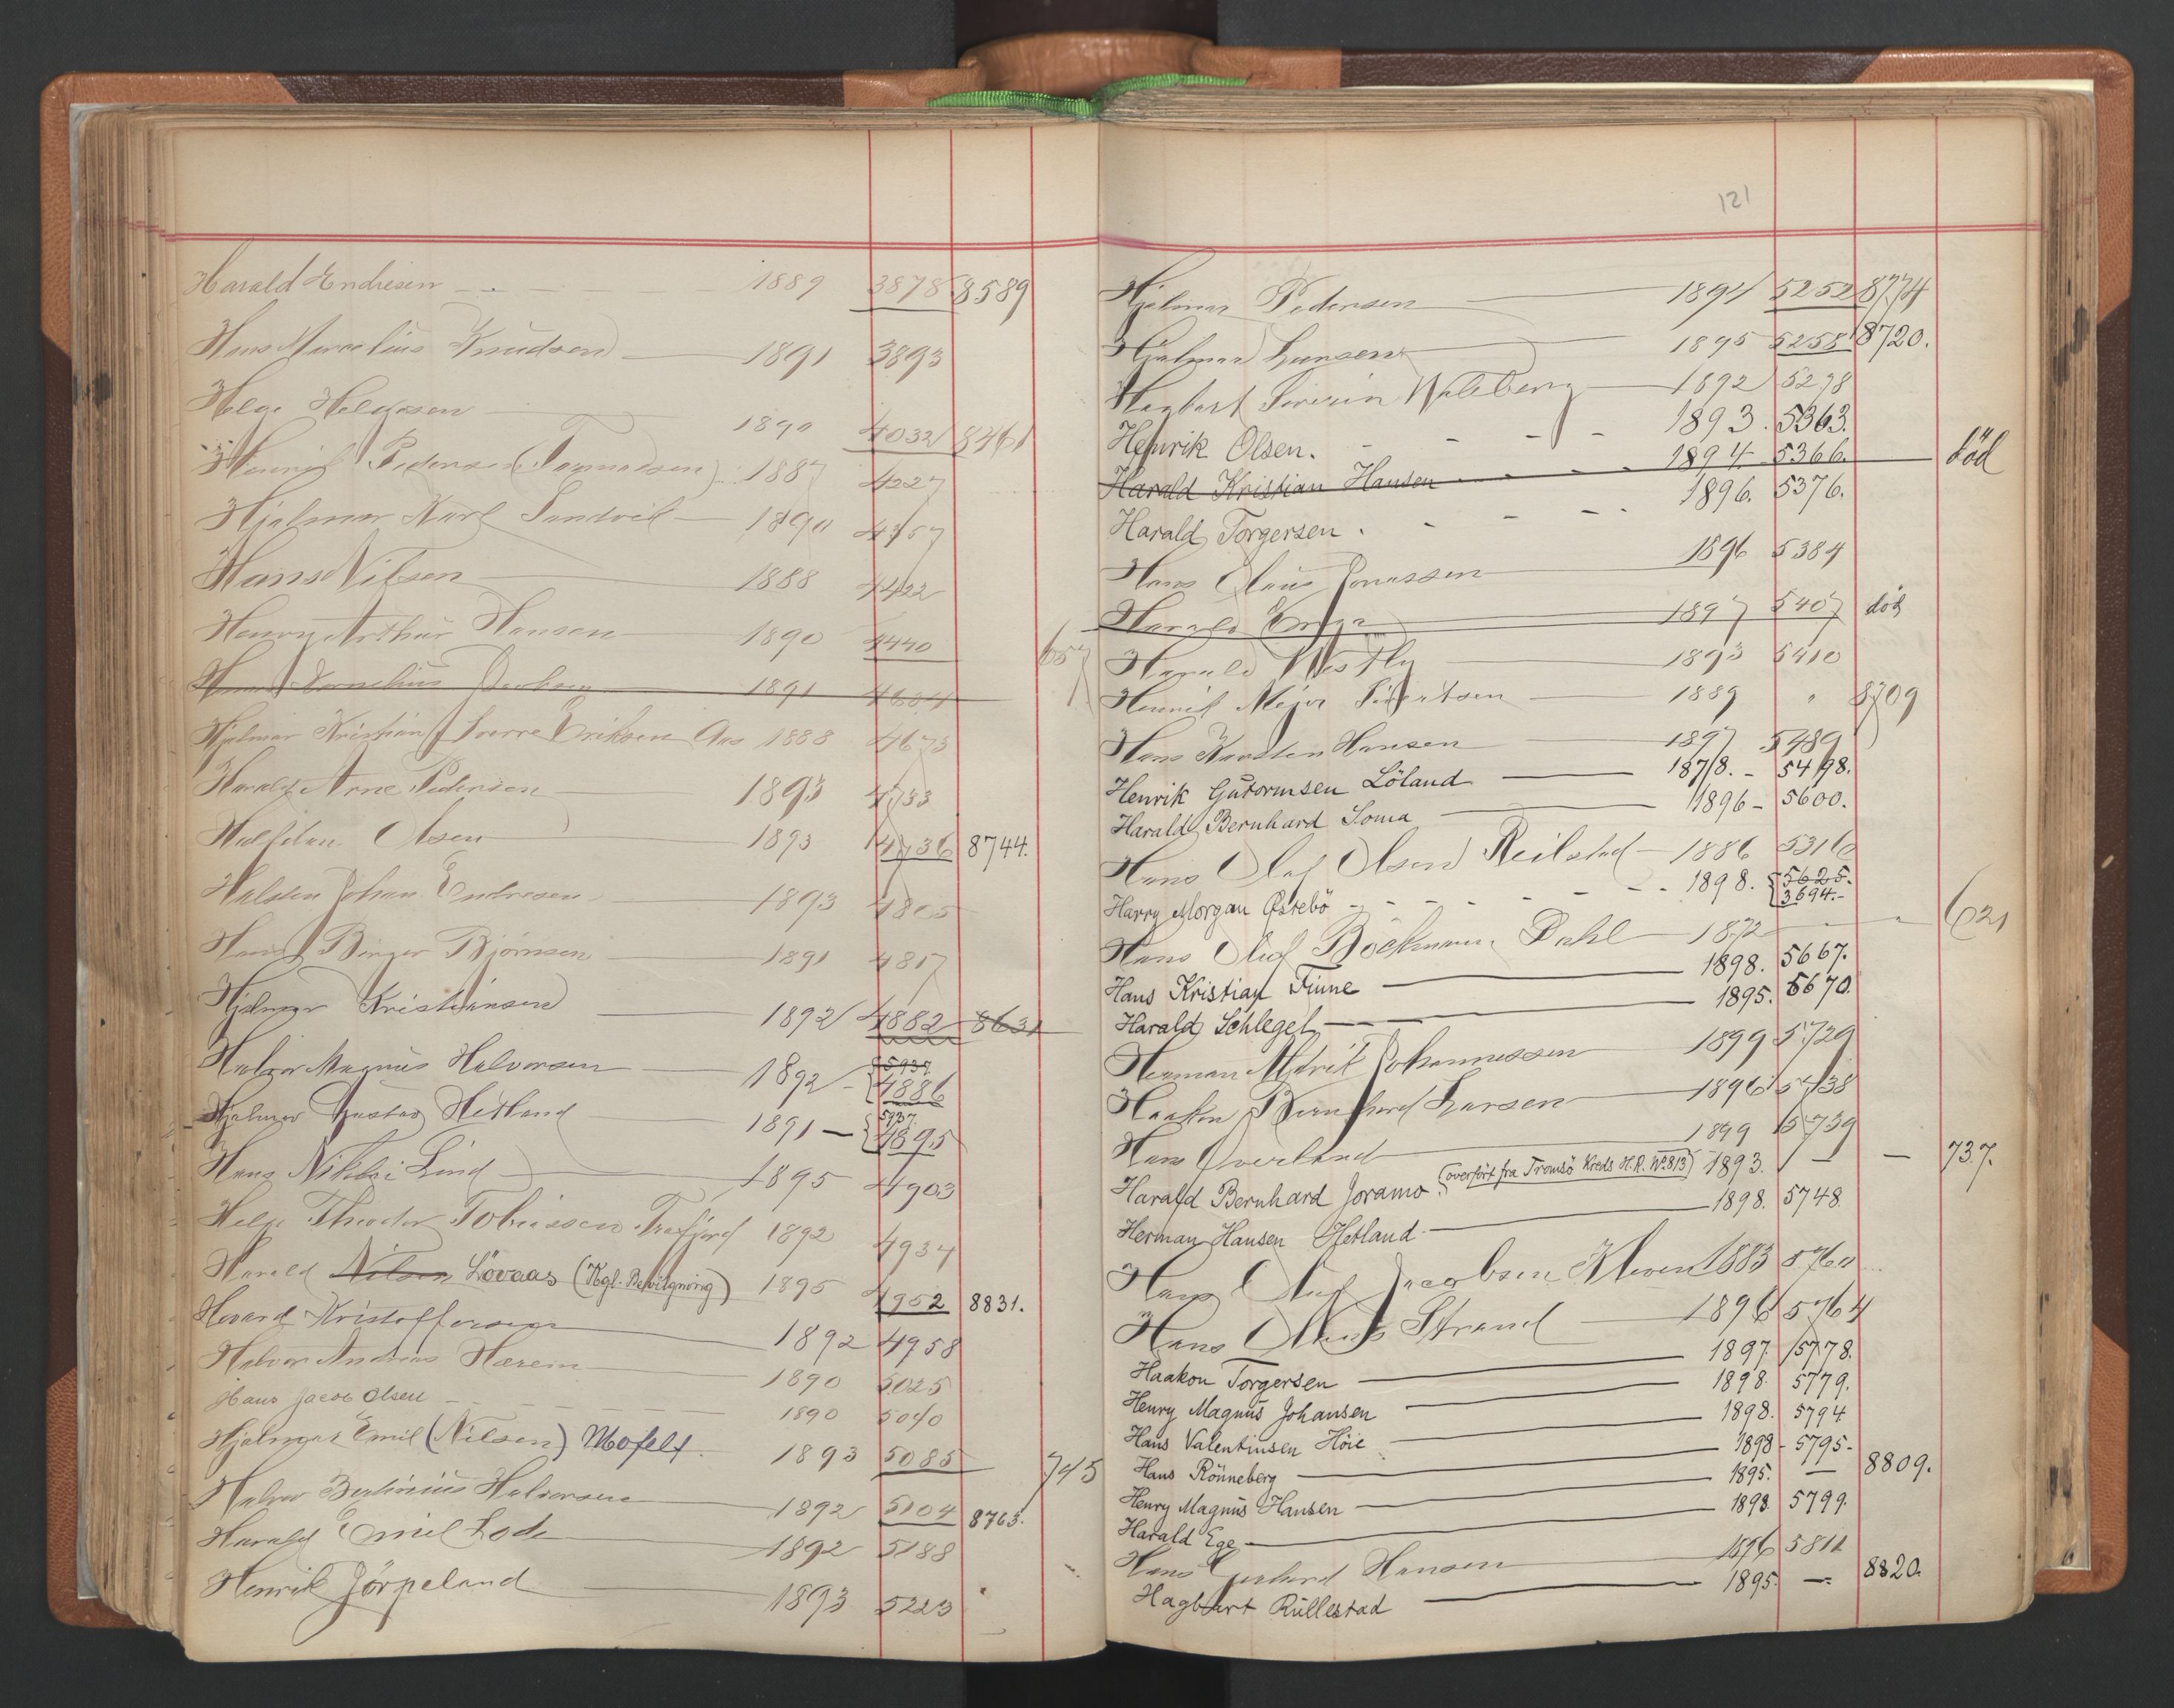 Harald Endresen 1889 3878 8589
Hans Marcelius Knudsen 1891 3893
Helge Helgesen 1890 4032 8361
Henrik Pedersen (Tormodsen) 1887 4227
Hjalmar Karl Sundvik 1890 4357
Hans Nilsen 1888 4422
Henry Arthur Hansen 1890 4440
Kornelius Jacobsen 1891 4604
Hjalmar Kristian Sverre Eriksen Aas 1888 4673
Harald Arne Pedersen 1893 4733
Halfdan Olsen 1893 4736 8744.
Halsten Johan Endresen 1893 4805
Birger Bjørnsen 1891 4817
Hjalmar Kristiansen 1892 4882 8631
Halvor Magnus Halvorsen 1892 - {5937. 4886
Hjalmar Gustav Hetland 1891 - {5937. 4895
Hans Nikolai Lind 1895 4903
Helge Theodor Tobiassen Frafjord 1892 4934
Harald Nilsen Lövaas (Kgl. Bevilgning) 1895 4952 8831.
Hovard Kristoffersen 1892 4958
Halvor Andreas Hærem 1890 5025
Hans Jacob Olsen 1890 5040
Hjalmar Emil (Nilsen) Mofelt. 1893 5085 745
Halvor Bertinius Halvorsen 1892 5104 8763.
Harald Emil Lode 1892 5188
Henrik Jörpeland 1893 5223
121
Hjalmar Pedersen 1894 5252 8774
Hjalmar Hansen 1895 5258 8720.
Hagbart Severin Waleberg 1892 5298
Henrik Olsen. 1893. 5363.
Harald Kristian Hansen 1894 5366. död
Harald Torgersen. 1896. 5376.
Hans Olaus Jonassen 1896 5384
Harald 1897 5407 död
657 Harald Westly 1893 5410
Henrik Mejer Sivertsen 1889 " 8709
Hans Karsten Hansen 1897 5489
Henrik Gutormsen Löland 1878. - 5498.
Harald Bernhard Soma 1896 - 5600.
Hans Olaf Olsen Reilstad 1886 5316
Harry Morgan Østebö 1898. {5625. 3694.-
Hans Oluf Böckmann Dahl 1872 621
Hans Kristian Finne 1898. 5667.
Harald Schlegel 1895. 5670.
Herman Mdrik Johannessen 1899 5729
Haakon Bernhard Larsen 1896 5738
Hans Overland 1899 5739
Harald Bernhard Joramo. (overført fra Tromsö Kreds H.R. No 813) 1893. — — 737.
Herman Hansen Hetland 1898. 5748.
Hans Oluf Jacobsen Kleven 1883 5760
Hans Olaus Strand 1896 5764
Haakon Torgersen 1897. 5778.
Henry Magnus Johansen 1898. 5779.
Hans Valentinsen Höie 1898. 5794
Hans Rönneberg 1898 - 5795 -
Henry Magnus Hansen 1895. — 8809.
Harald Ege 1898. 5799.
Hans Gerhard Hansen 1896 5811
Hagbart Rullestad 1895. — 8820.